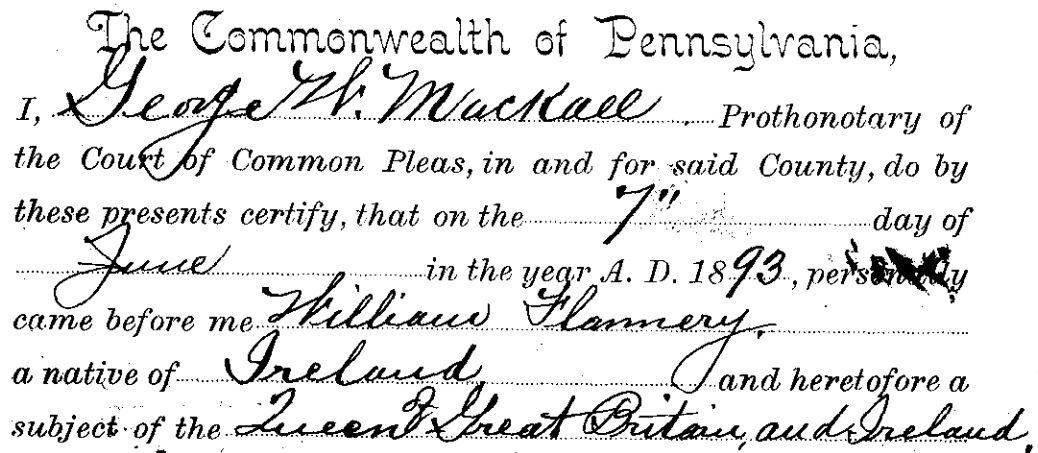 The Commonwealth of Pennsylvania,
I, George W. Mackall. Prothonotary of
the Court of Common Pleas, in and for said County, do by
these presents certify, that on the 7" day of
June in the year A. D. 1893, personally
came before me William Flannery,
a native of Ireland, and heretofore a
subject of the Queen of Great Britain, and Ireland,